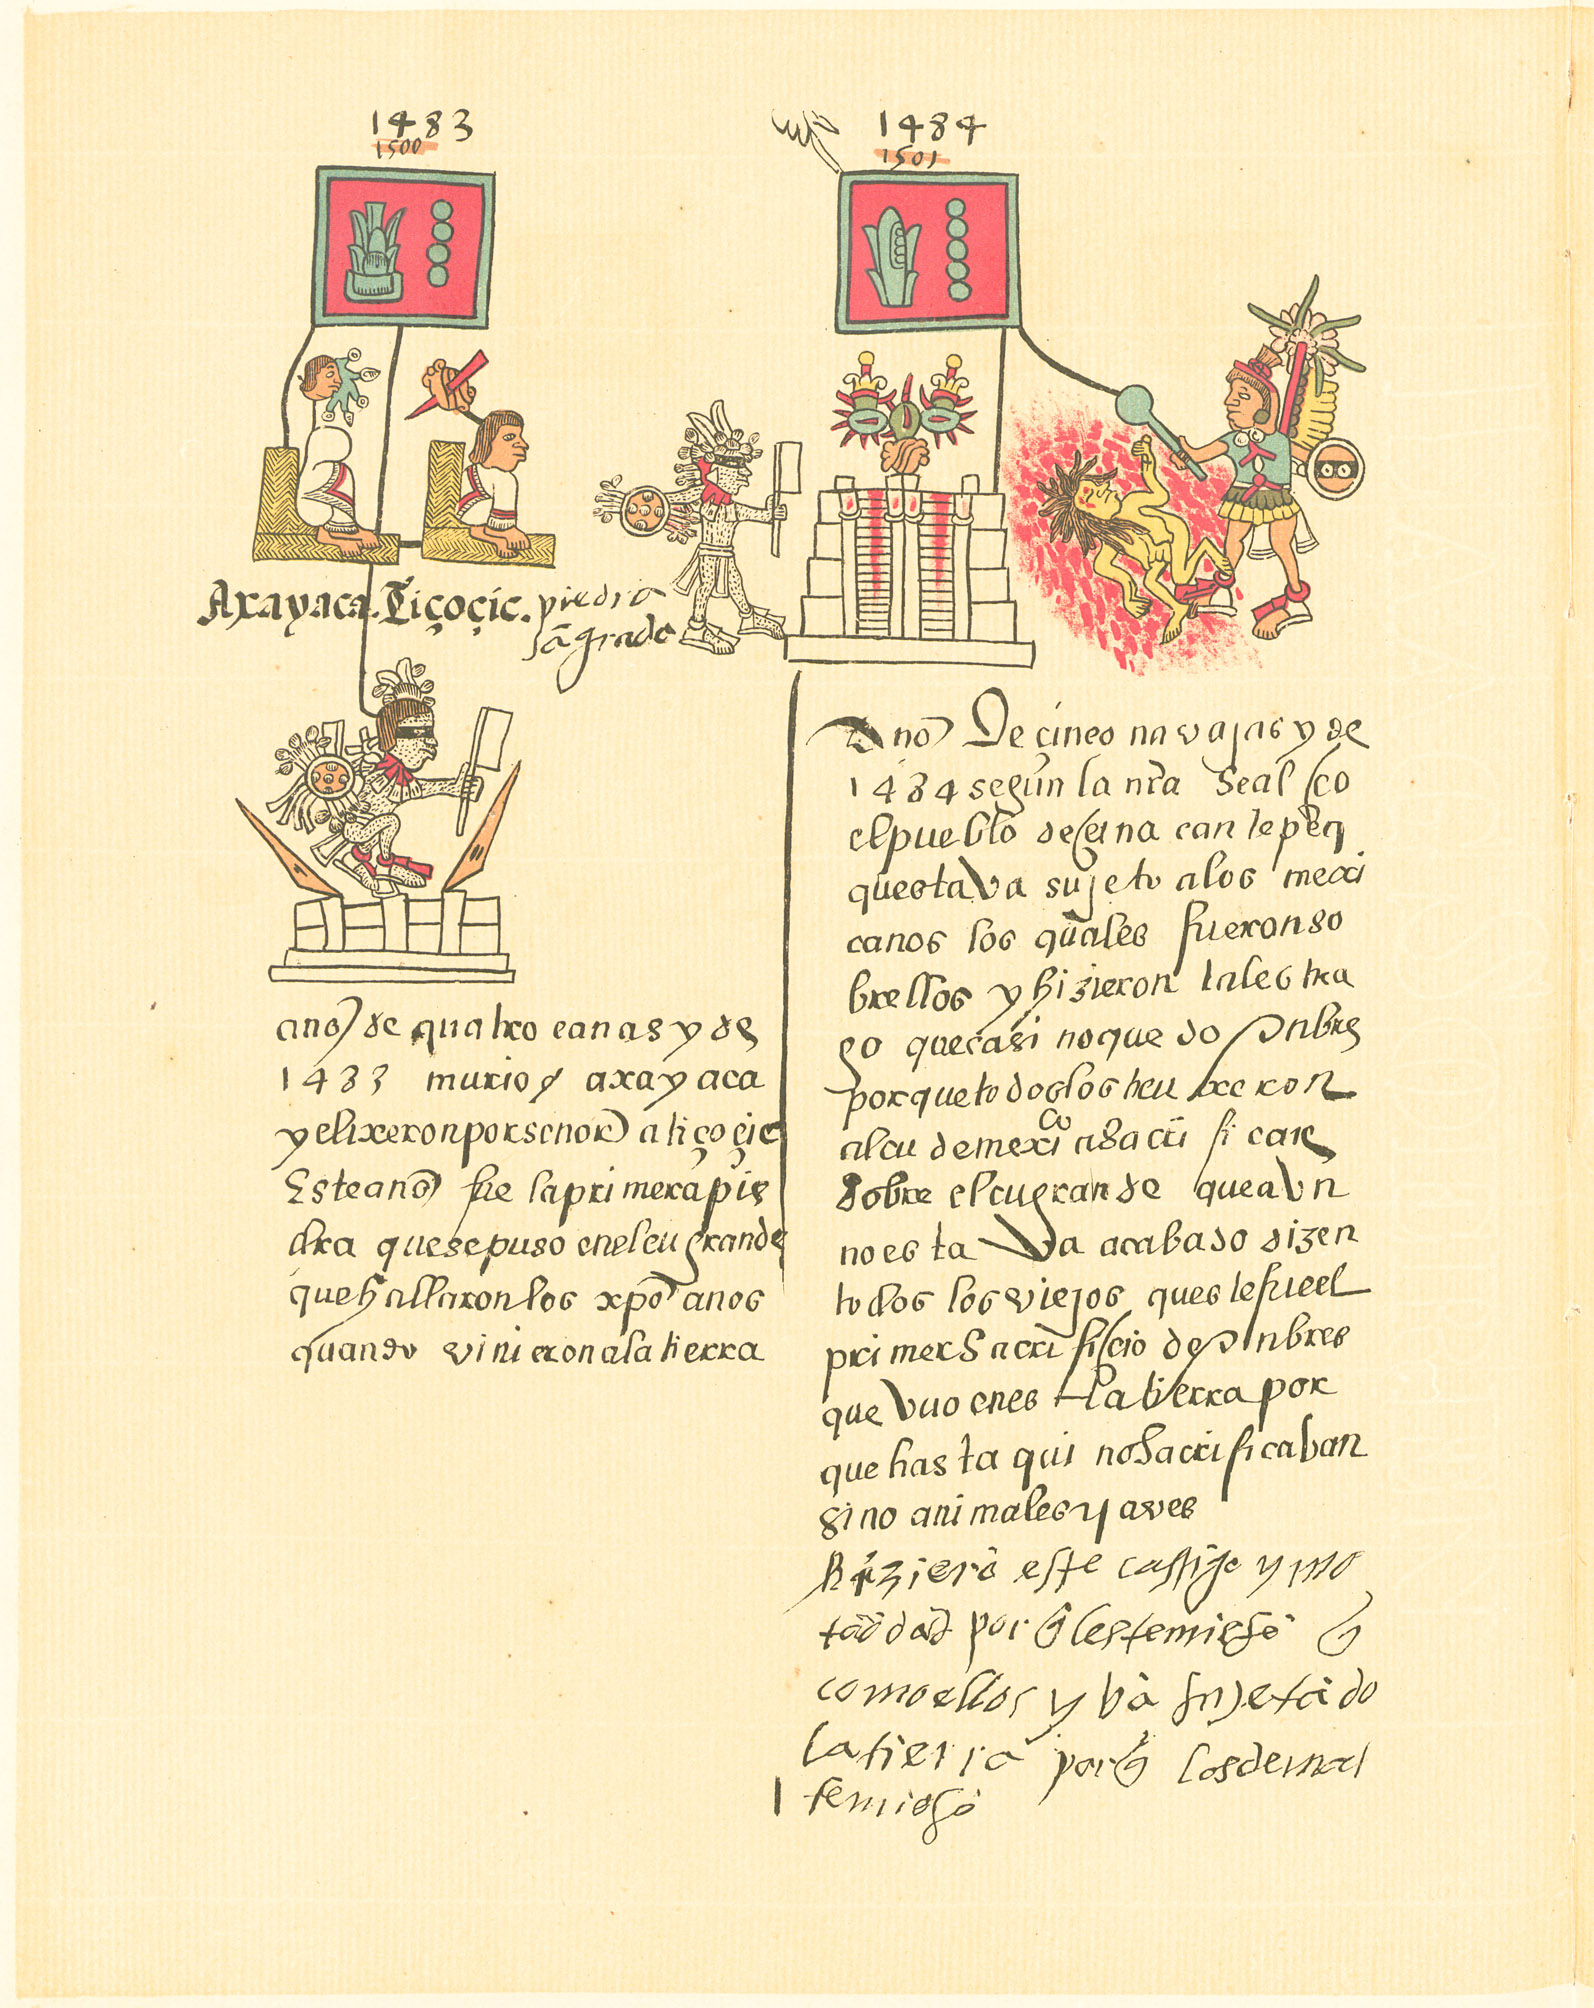 1483
1500
1484
1501
Axayaca. Tiçoçic. piedra
sāgrada
año de quatro canas y de
1483 murio axayaca
y elixeron por señor a tiçoçic
Este año fue la primera pie
dra que se puso en el cu grande
que hallaron los xpõanos
quando vinieron a la tierra
Año De cinco navajas y de
1484 segun la nra Se alço
el pueblo de
questava sujeto a los mexi
canos los quales fueron so
brellos y hizieron tal estra
go que casi no quedo onbre
porque todos los truxeron
al cu de mexico a sacrificar
sobre el cu grande que aun
no estava acabado dizen
todos los viejos queste fue el
primer Sacrificio de onbres
que vuo en esta tierra por
que hasta qui no Sacrificaban
sino animales y aves
hizierō este castigo y mo
por q̄ les temiesē q̄
como ellos y bā sujetādo
la tierra porq̄ los demas
temiesē